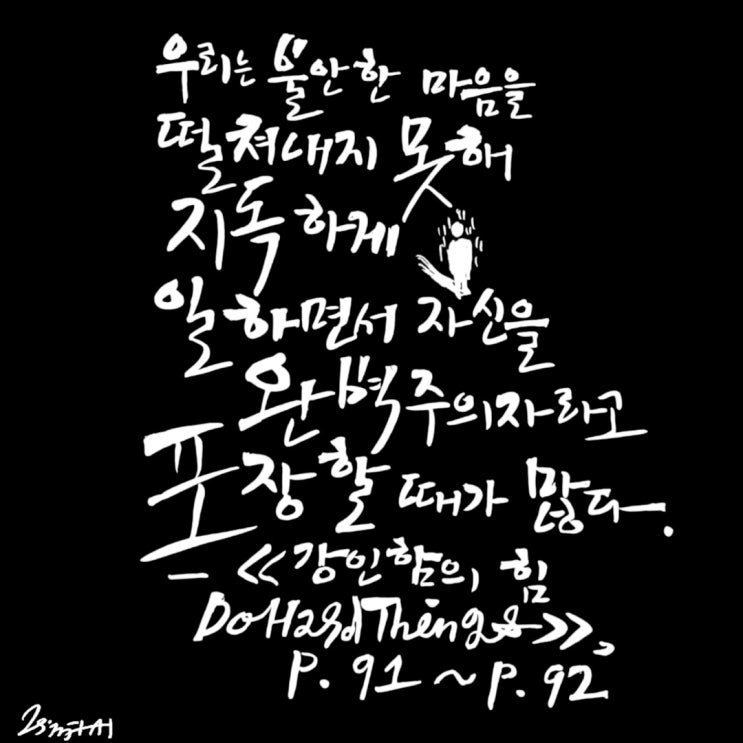 우리는 불안한 마음을
떨쳐내지 못해
지독하게
일하면서 자신을
완벽주의자라고
포장할 때가 많다.
- <<강인함의 힘
DoHardThings>>,
P. 91~P. 92